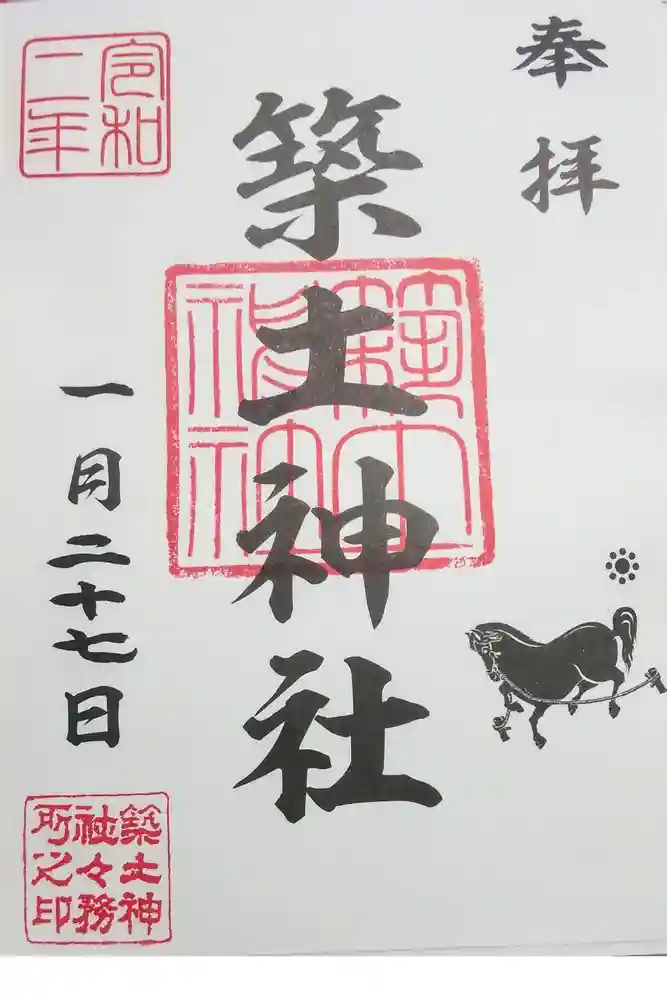 奉拝
築土神社
築土神社
令和二年
一月二十七日
築土神
社々務
所之印